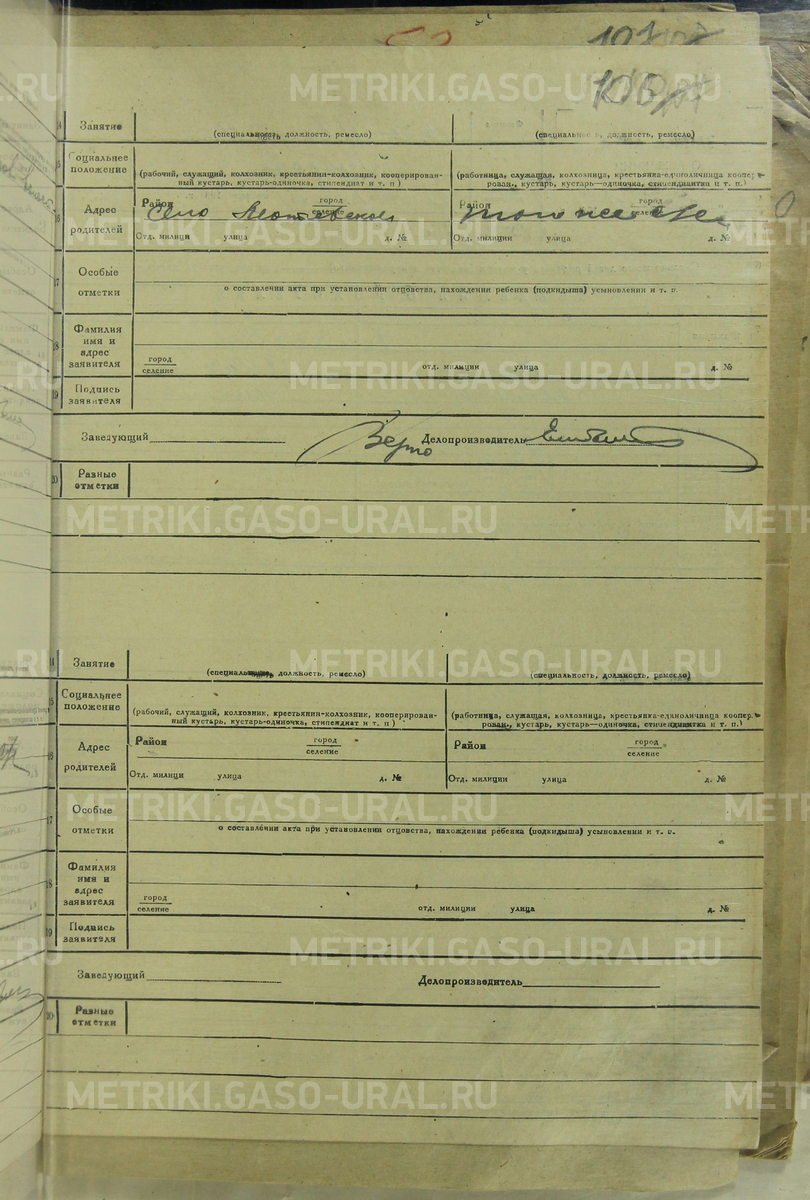 101
106
14 Занятие
(специальность, должность, ремесло)
(специальность, должность, ремесло)
15 Социальнее положение
(рабочий, служащий, колхозник, крестьянин-колхозник, кооперированный кустарь, кустарь-одиночка, стипендиат и т. п )
(работница, служащая, колхозница, крестьянка-единоличница коопер. рован., кустарь, кустарь—одиночка, стипендиатка и т. п.)
16 Адрес родителей
Район город селение
Село
Отд. милици улица д. №
Район город селение
Отд. милиции улица д. №
17 Особые отметки
о составлении акта при установлении отцовства, нахождении ребенка (подкидыша) усыновлении и т. п.
18 Фамилия имя и адрес заявителя
город селение отд. милиции улица д. №
19 Подпись заявителя
Заведующий Верно Делопроизводитель
20 Разные отметки
14 Занятие
(специальность, должность, ремесло)
(специальность, должность, ремесло)
15 Социальнее положение
(рабочий, служащий, колхозник, крестьянин-колхозник, кооперированный кустарь, кустарь-одиночка, стипендиат и т. п )
(работница, служащая, колхозница, крестьянка-единоличница коопер. рован., кустарь, кустарь—одиночка, стипендиатка и т. п.)
16 Адрес родителей
Район город селение
Отд. милици улица д. №
Район город селение
Отд. милиции улица д. №
17 Особые отметки
о составлении акта при установлении отцовства, нахождении ребенка (подкидыша) усыновлении и т. п.
18 Фамилия имя и адрес заявителя
город селение отд. милиции улица д. №
19 Подпись заявителя
Заведующий Делопроизводитель
20 Разные отметки
METRIKI.GASO-URAL.RU